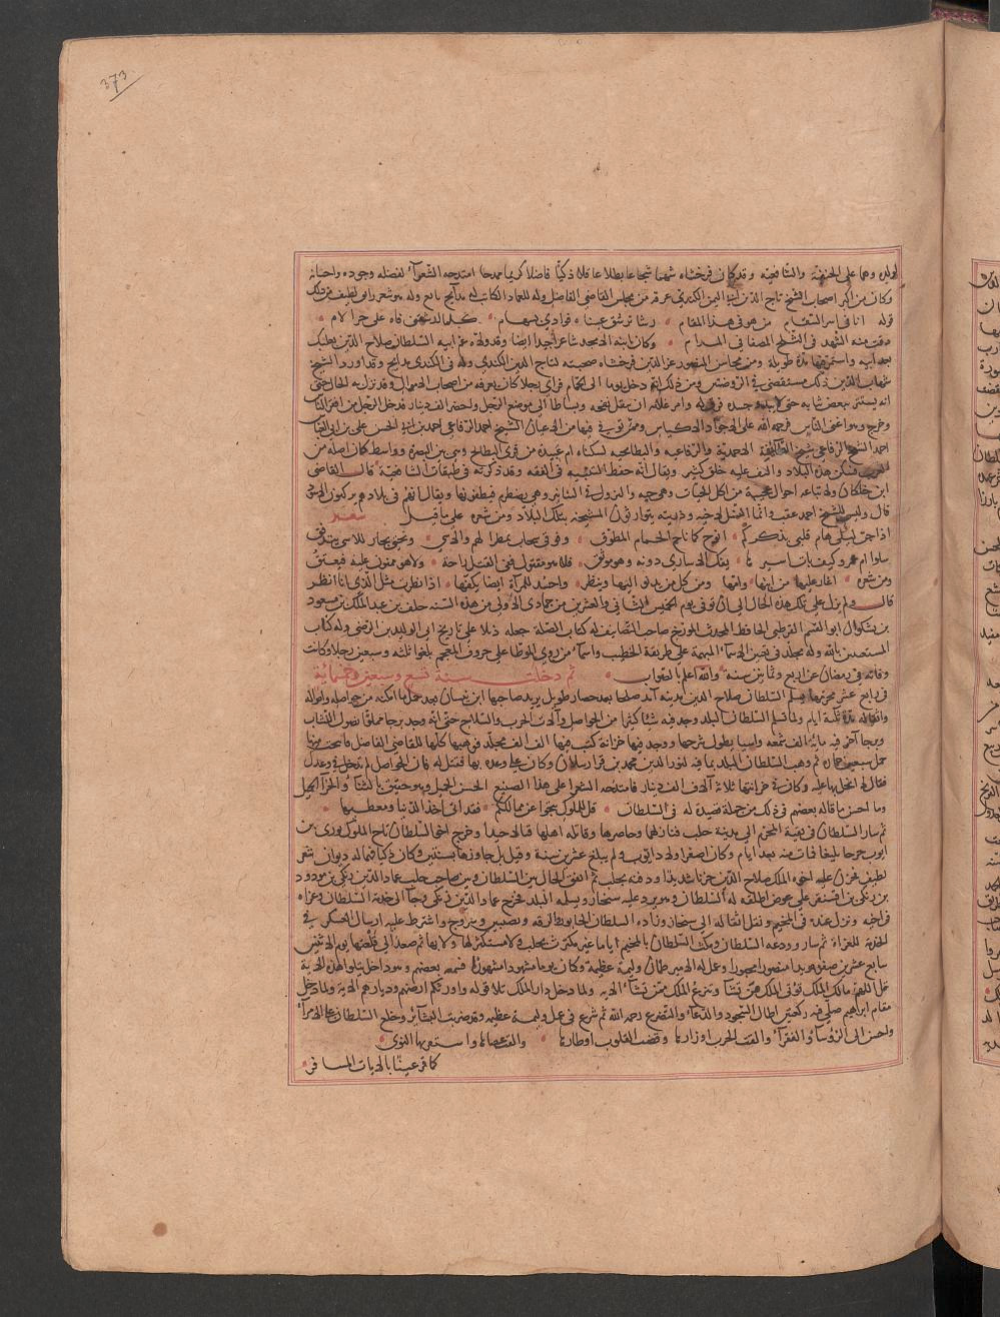 373
لولده وهما على الحنفية والشافعية وقد كان فرخشاه شهما شجاعا بطلا عاقلا ذكيا فاضلا كريما ممدحا امتدحه الشعرآء لفضله وجوده واحسانه
وكان من اكبر اصحاب الشيخ تاج الدين ابو اليمن الكندي عرفه من مجلس القاضي الفاضل وله وللعماد الكاتب فيه مدايح وله شعر رائق لطيف فمن ذلك
قوله انا في اسر السقام من هوى هذا المقام رشا ترشق عيناه فؤادي بسهام كلما ارشفني فاه على حر الاوام
ذقت منه الشهد في الثلج المصفا في المدام وكان ابنه الامجد شاعرا جيدا ايضا وقد ولاه عم ابيه السلطان صلاح الدين بعلبك
بعد ابيه واستمر فيها مدة طويلة ومن محاسن المنصور عز الدين فرخشاه صحبته لتاج الدين الكندي وله في الكندي مدايح وقد اورد الشيخ
شهاب الدين ذلك مستقصى في الروضتين ومن ذلك انه دخل يوما الى الحمام فرأى رجلا كان يعرفه من اصحاب الاموال وقد نزل به الحال حتى
انه يستتر ببعض ثيابه حتى لا يبدو جسده فرق له وامر غلامه ان ينقل بقجة وبساطا الى موضع الرجل واحضر الف دينار فدخل الرجل من افقر الناس
وخرج وهو اغنى الناس فرحمه الله على الاجواد الاكياس وممن توفي فيها من الاعيان الشيخ احمد الرفاعي احمد بن ابي الحسن علي بن ابي العباس
احمد الشيخ الرفاعي شيخ الطائفة الاحمدية والرفاعيه والبطايحيه لسكناه ام عبيدة من قرى البطايح وهي بين البصرة وواسط كان اصله من
العرب فسكن هذه البلاد والتف عليه خلق كثير ويقال انه حفظ التنبيه في الفقه وقد ذكرته في طبقات الشافعية قال القاضي
ابن خلكان ولاتباعه احوال عجيبة من اكل الحيات وهي حيه والنزول في التنانير وهي تضطرم فيطفونها ويقال انهم في بلادهم يركبون الاسود
قال وليس للشيخ احمد عقب وانما النسل لاخيه وذريته يتوارثون المشيخة بتلك البلاد ومن شعره على ما قيل شعر
اذا جن ليلي هام قلبي بذكركم انوح كما ناح الحمام المطوق وفوقي سحاب يمطر الهم والاسى وتحتي بحار للاسى تتدفق
سلوا ام عمرو كيف بات اسيرها تفك الاسارى دونه وهو موثق فلا هو مقتول ففي القتل راحة ولا هو ممنون عليه فيعتق
ومن شعره اغار عليها من ابيها وامها ومن كل من يدنو اليها وينظر واحسد للمرآة ايضا بكفها اذا نظرت مثل الذي انا انظر
قال ولم يزل على تلك هذه الحال الى ان توفي يوم الخميس الثاني والعشرين من جمادى الاولى من هذه السنه خلف بن عبد الملك بن مسعود
بن بشكوال ابو القسم القرطبي الحافظ المحدث المورخ صاحب التصانيف له كتاب الصلة جعله ذيلا على تاريخ ابي الوليد بن الفرضي وله كتاب
المستغيثين بالله وله مجلد في تعيين الاسمآء المبهمة على طريقة الخطيب واسمآء من روى الموطا على حروف المعجم بلغوا ثلثة وسبعين رجلا وكانت
وفاته في رمضان عن اربع وثمانين سنة والله اعلم بالصواب ثم دخلت سنة تسع وسبعين وخمسمائة
في رابع عشر محرمها تسلم السلطان صلاح الدين مدينه آمد صلحا بعد حصار طويل من يد صاحبها ابن نيسان بعد حمل ما امكنه من حواصله وامواله
واثقاله مدة ثلثة ايام ولما تسلم السلطان البلد وجد فيه شيئا كثيرا من الحواصل وآلات الحرب والسلاح حتى انه وجد برجا مملوا نصول النشاب
وبرجا آخر فيه ماية الف شمعه واشيا يطول شرحها ووجد فيها خزانة كتب فيها الف الف مجلد فوهبها كلها للقاضي الفاضل فانتخب منها
حمل سبعين حماره ثم وهب السلطان البلد بما فيه لنور الدين محمد بن قرا ارسلان وكان قد وعده بها فقيل له فان الحواصل لم تدخل في وعدك
فقال لا ابخل بها عليه وكان في خزانتها ثلاثة آلاف الف دينار فامتدحه الشعرا على هذا الصنيع الحسن الجميل وهو حقيق بالثنآء والجزآ الجميل
وما احسن ما قاله بعضهم في ذلك من جملة قصيدة له في السلطان قل للملوك تنحوا عن ممالككم فقد اتى آخذ الدنيا ومعطيها
ثم سار السلطان في بقية المحرم الى مدينة حلب فنازلها وحاصرها وقاتله اهلها قتالا جيدا وخرج اخو السلطان تاج الملوك بوري بن
ايوب جرحا بليغا فمات منه بعد ايام وكان اصغر اولاد ايوب ولم يبلغ عشرين سنة وقيل بل جاوزها بسنتين وكان ذكيا فهما له ديوان شعر
لطيف فحزن عليه اخوه الملك صلاح الدين حزنا شديدا ودفنه بحلب ثم اتفق الحال بين السلطان وبين صاحب حلب عماد الدين زنكي بن مودود
بن زنكي بن اقسنقر على عوض اطلقه له السلطان وهو يرد عليه سنجار ويسلمه البلد فخرج عماد الدين زنكي وجآ الى خدمة السلطان وعزاه
في اخيه ونزل عنده في المخيم ونقل اثقاله الى سنجار وزاده السلطان الخابور والرقه ونصيبين وسروج واشترط عليه ارسال العسكر في
الخدمة للغزاة ثم سار وودعه السلطان ومكث السلطان بالمخيم اياما غير مكترث بحلب ولا مستكثر لها ولا بها ثم صعد الى قلعتها يوم الاثنين
سابع عشرين صفر مؤيدا منصورا محبورا وعمل له الامير طمان وليمة عظيمة وكان يوما مشهودا مشهورا فسمعه بعضهم وهو داخل يتلو هذه الآية
قل اللهم مالك الملك تؤتي الملك من تشآ وتنزع الملك ممن تشآء الايه ولما دخل دار الملك تلا قوله واورثكم ارضهم وديارهم الاية ولما دخل
مقام ابراهيم صلى فيه ركعتين اطال السجود والدعآء والتضرع رحمه الله ثم شرع في عمل وليمة عظيمه وقد ضربت البشائر وخلع السلطان على الامرآء
واحسن الى الرؤسآ والفقرآء والقت الحرب اوزارها وقضت القلوب اوطارها والقت عصاها واستقر بها النوى
كما قر عينا بالاياب المسافر